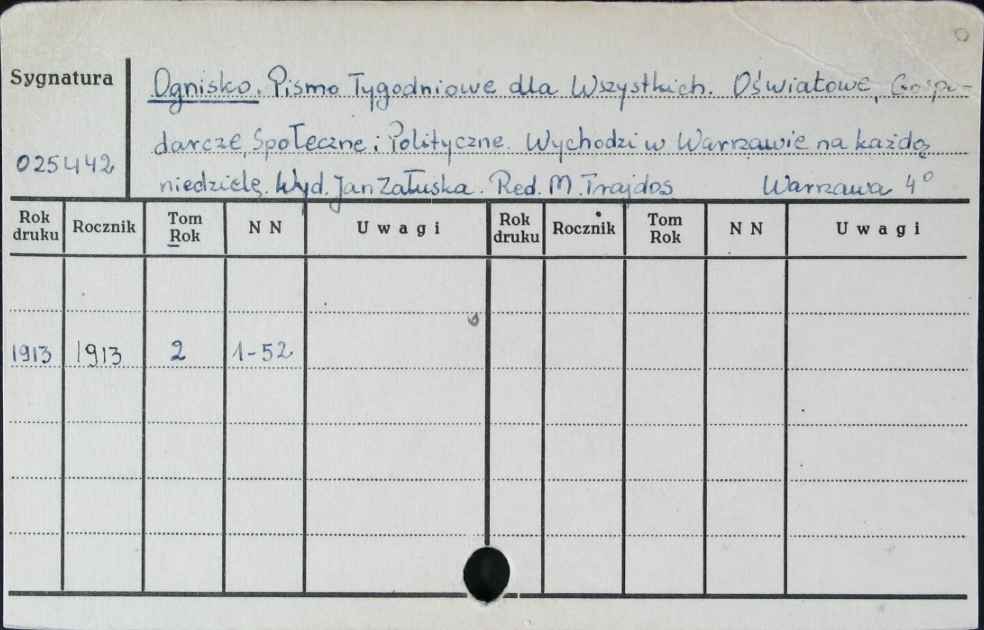 Sygnatura
Ognisko. Pismo Tygodniowe dla Wszystkich. Oświatowe, Gospo-
darcze, Społeczne i Polityczne. Wychodzi w Warszawie na każdą
025442
niedzielę. Wyd. Jan Załuska. Red. M. Trajdos Warszawa 4°
Rok druku Rocznik Tom Rok NN Uwagi Rok druku Rocznik Tom Rok NN Uwagi
1913 1913 2 1-52